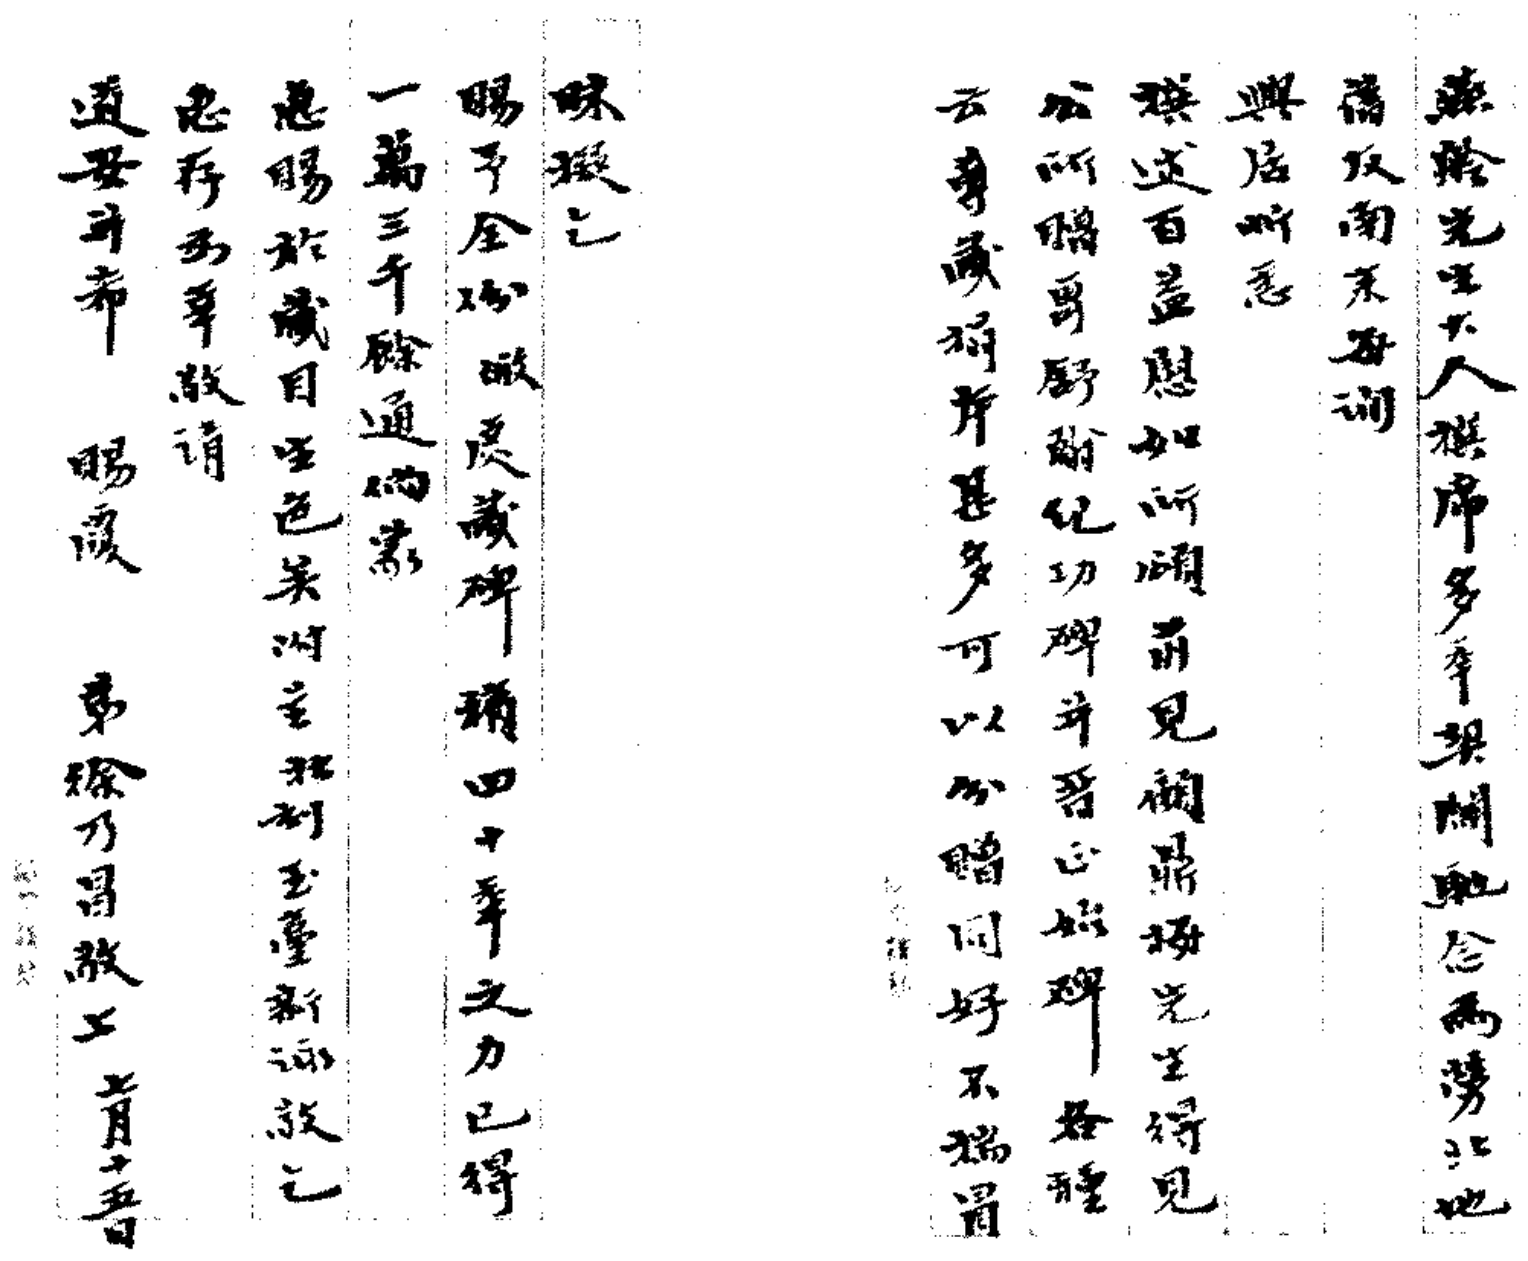 燕舲先生大人撰席多年契闊馳念爲勞北地
舊友南來每詢
興居昕悉
撰述百益慰如所頌前見顧鼎梅先生得見
公所贈曹郡紀功碑并晉正始碑各種
云尊藏稱并甚多可以分贈同好不揣冒
昧擬乞
賜予全份 敝處藏碑積四十年之力已得
一萬三千餘通倘蒙
惠賜於藏目生色矣附呈拙刻玉臺新詠敬乞
惠存爲幸敬請
道安并希 賜覆 弟徐乃昌敬上 七月十五日